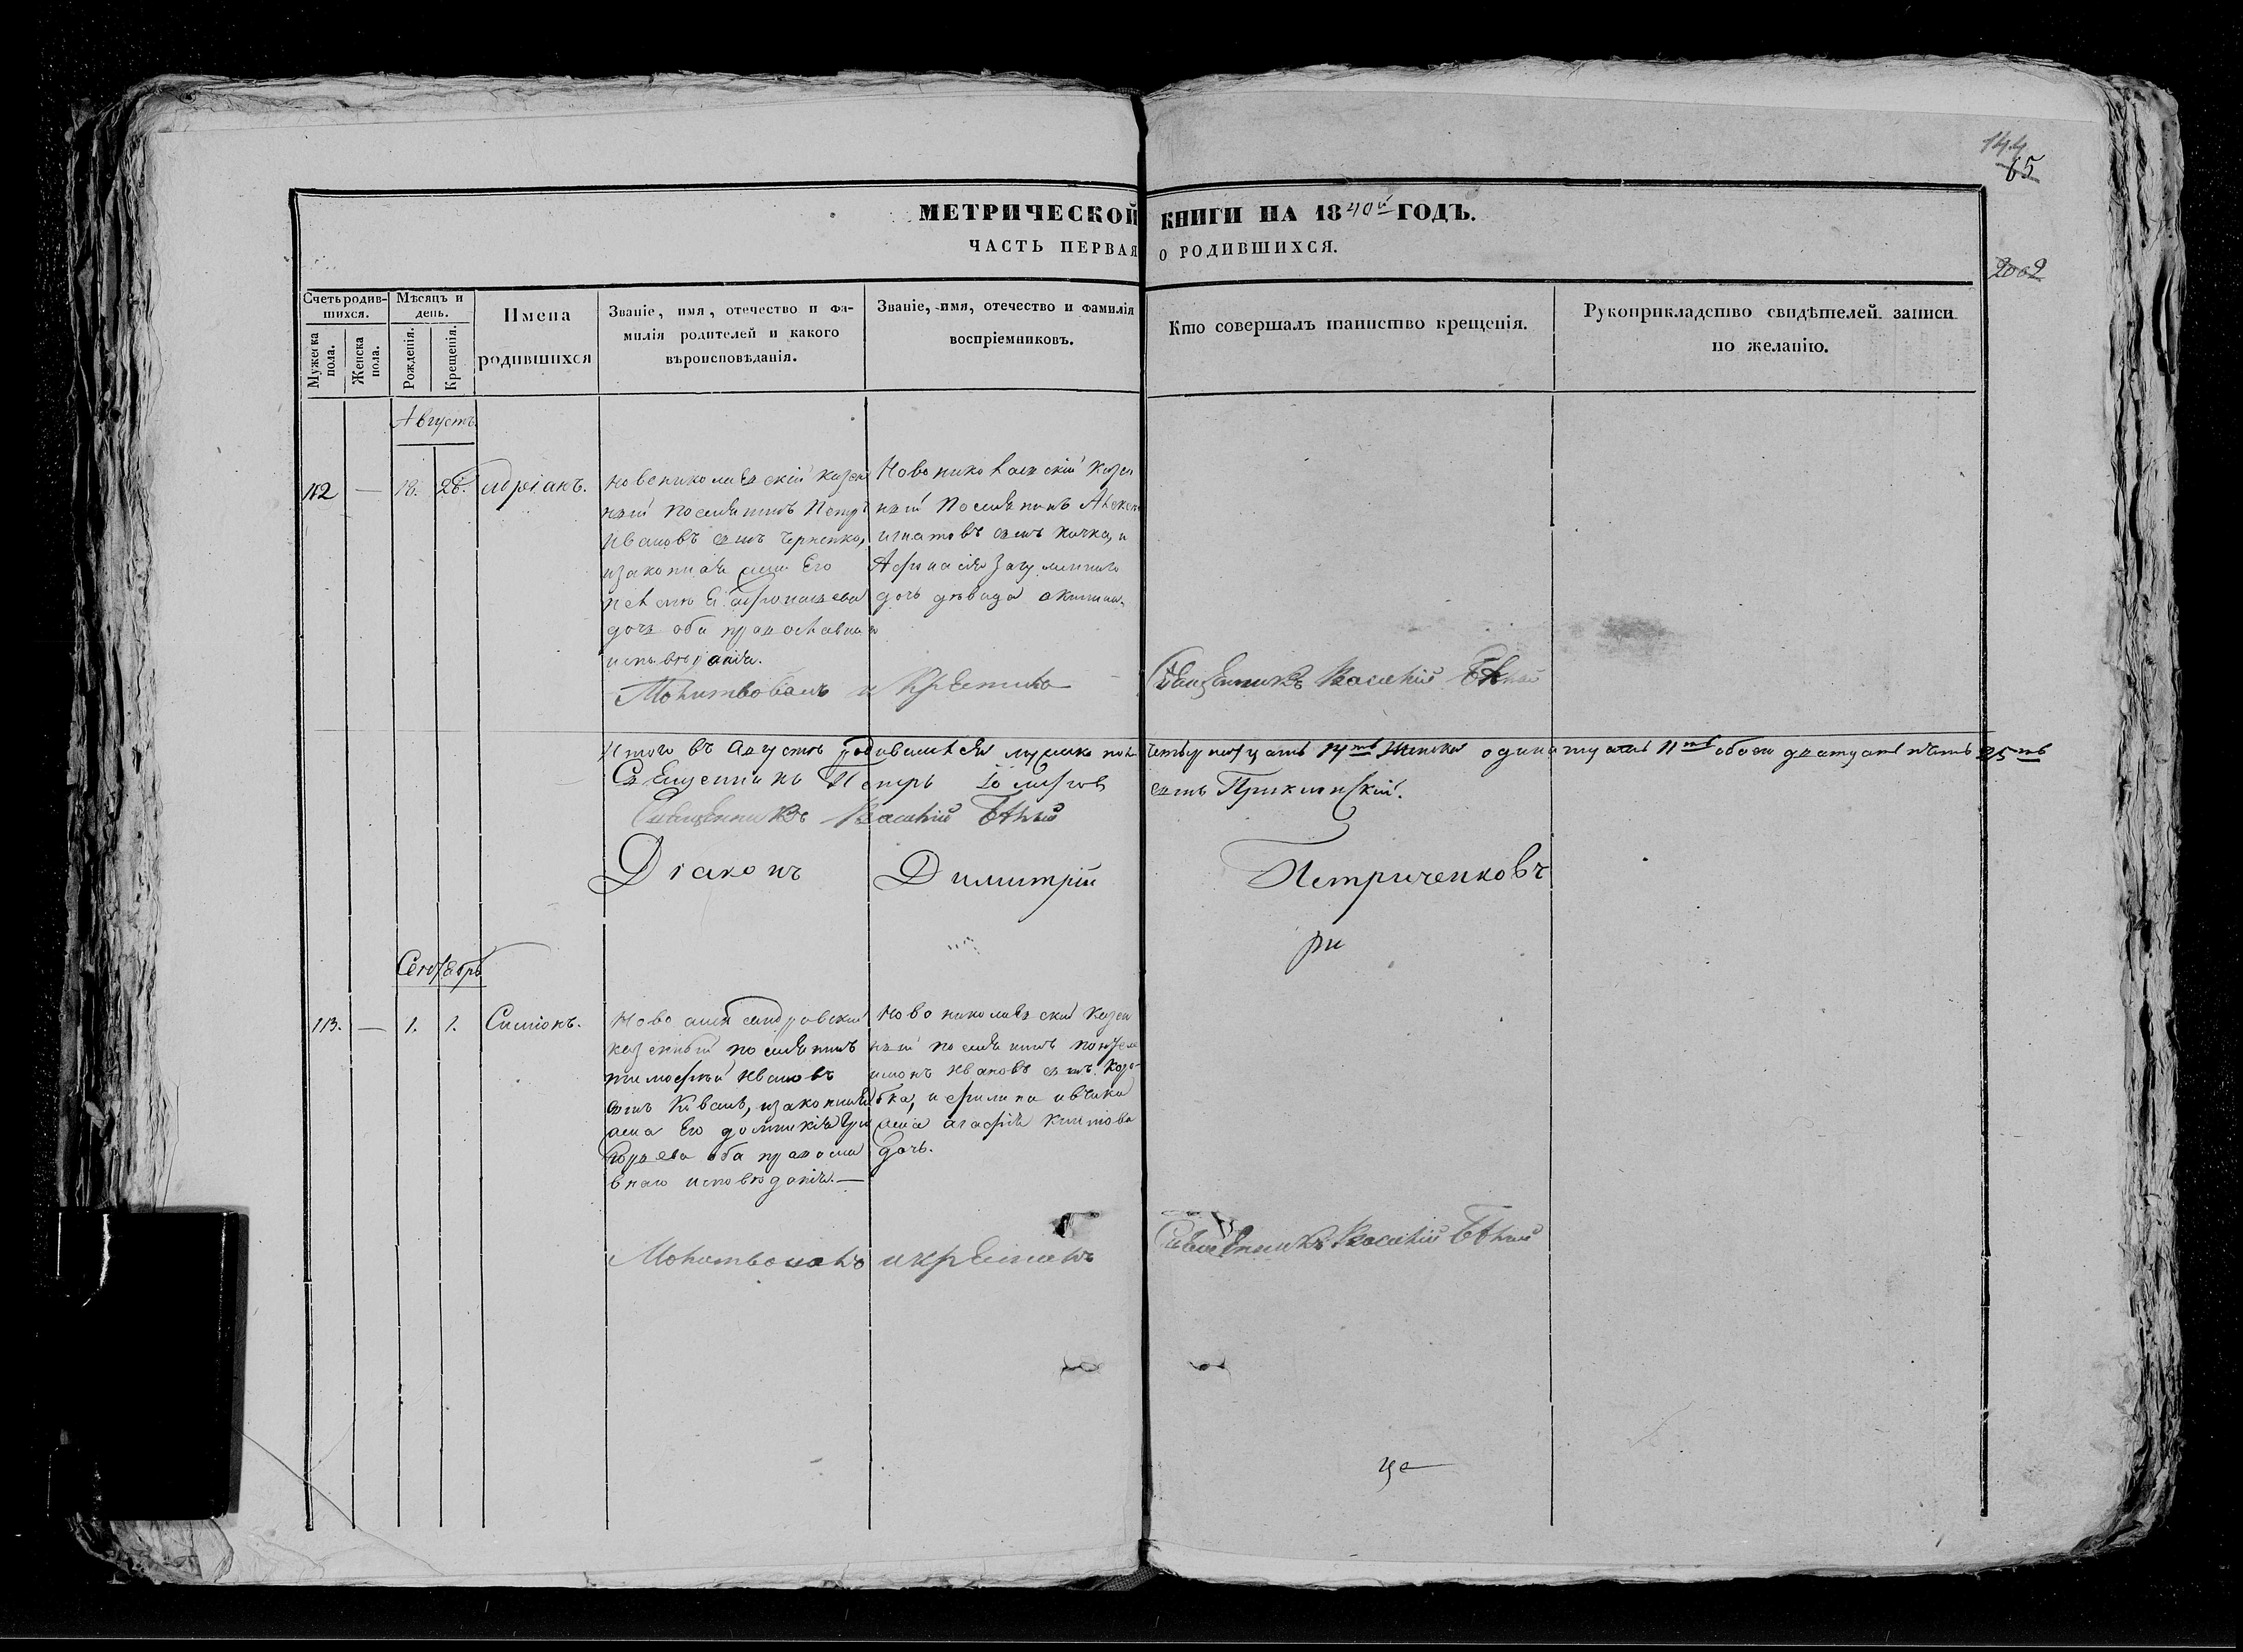 144
65
МЕТРИЧЕСКОЙ КНИГИ НА 1840й ГОДЪ.
ЧАСТЬ ПЕРВАЯ О РОДИВШИХСЯ.
2002
Счетъ родившихся.
Мужеска пола.
Женска пола.
Мѣсяцъ и день.
Рожденія.
Крещенія.
Имена родившихся
Званіе, имя, отечество и фамилія родителей и какого вѣроисповѣданія.
Званіе, имя, отечество и фамилія воспріемниковъ.
Кто совершалъ таинство крещенія.
Рукоприкладство свидѣтелей записи по желанію.
Августъ
112 — 18. 26. Адріанъ.
Новониколаевскій казен
ный поселянинъ Петръ
Ивановъ сынъ Черненко,
изаконная жена Его
дочь оба православнаго
исповѣданія.
Новониколаевскій казен
ный Поселянинъ
Игнатовъ сынъ
дочь дѣвица
Молитвовалъ и крестилъ
Священникъ Василій Бѣлый
Итого въ Августѣ родившихся мужеска пола четырнатцать 14ть Женска одинатцать 11ть обоего дватцать пять 25ть
Священникъ Петръ сынъ
Священникъ Василій Бѣлый
Діаконъ Димитрій Петриченковъ
ри
Сентябрь
113. — 1. 1. Симіонъ.
Ново александровскій
казенный поселянинъ
тимофѣй Ивановъ
сынъ изаконная
жена Его домникія Гри
горьева оба правосла
внаго исповѣданія. —
Ново николаевскій казен
ный поселянинъ
Ивановъ сынъ
жена агафія
дочь.
Молитвовалъ и крестилъ
Священникъ Василій Бѣлый